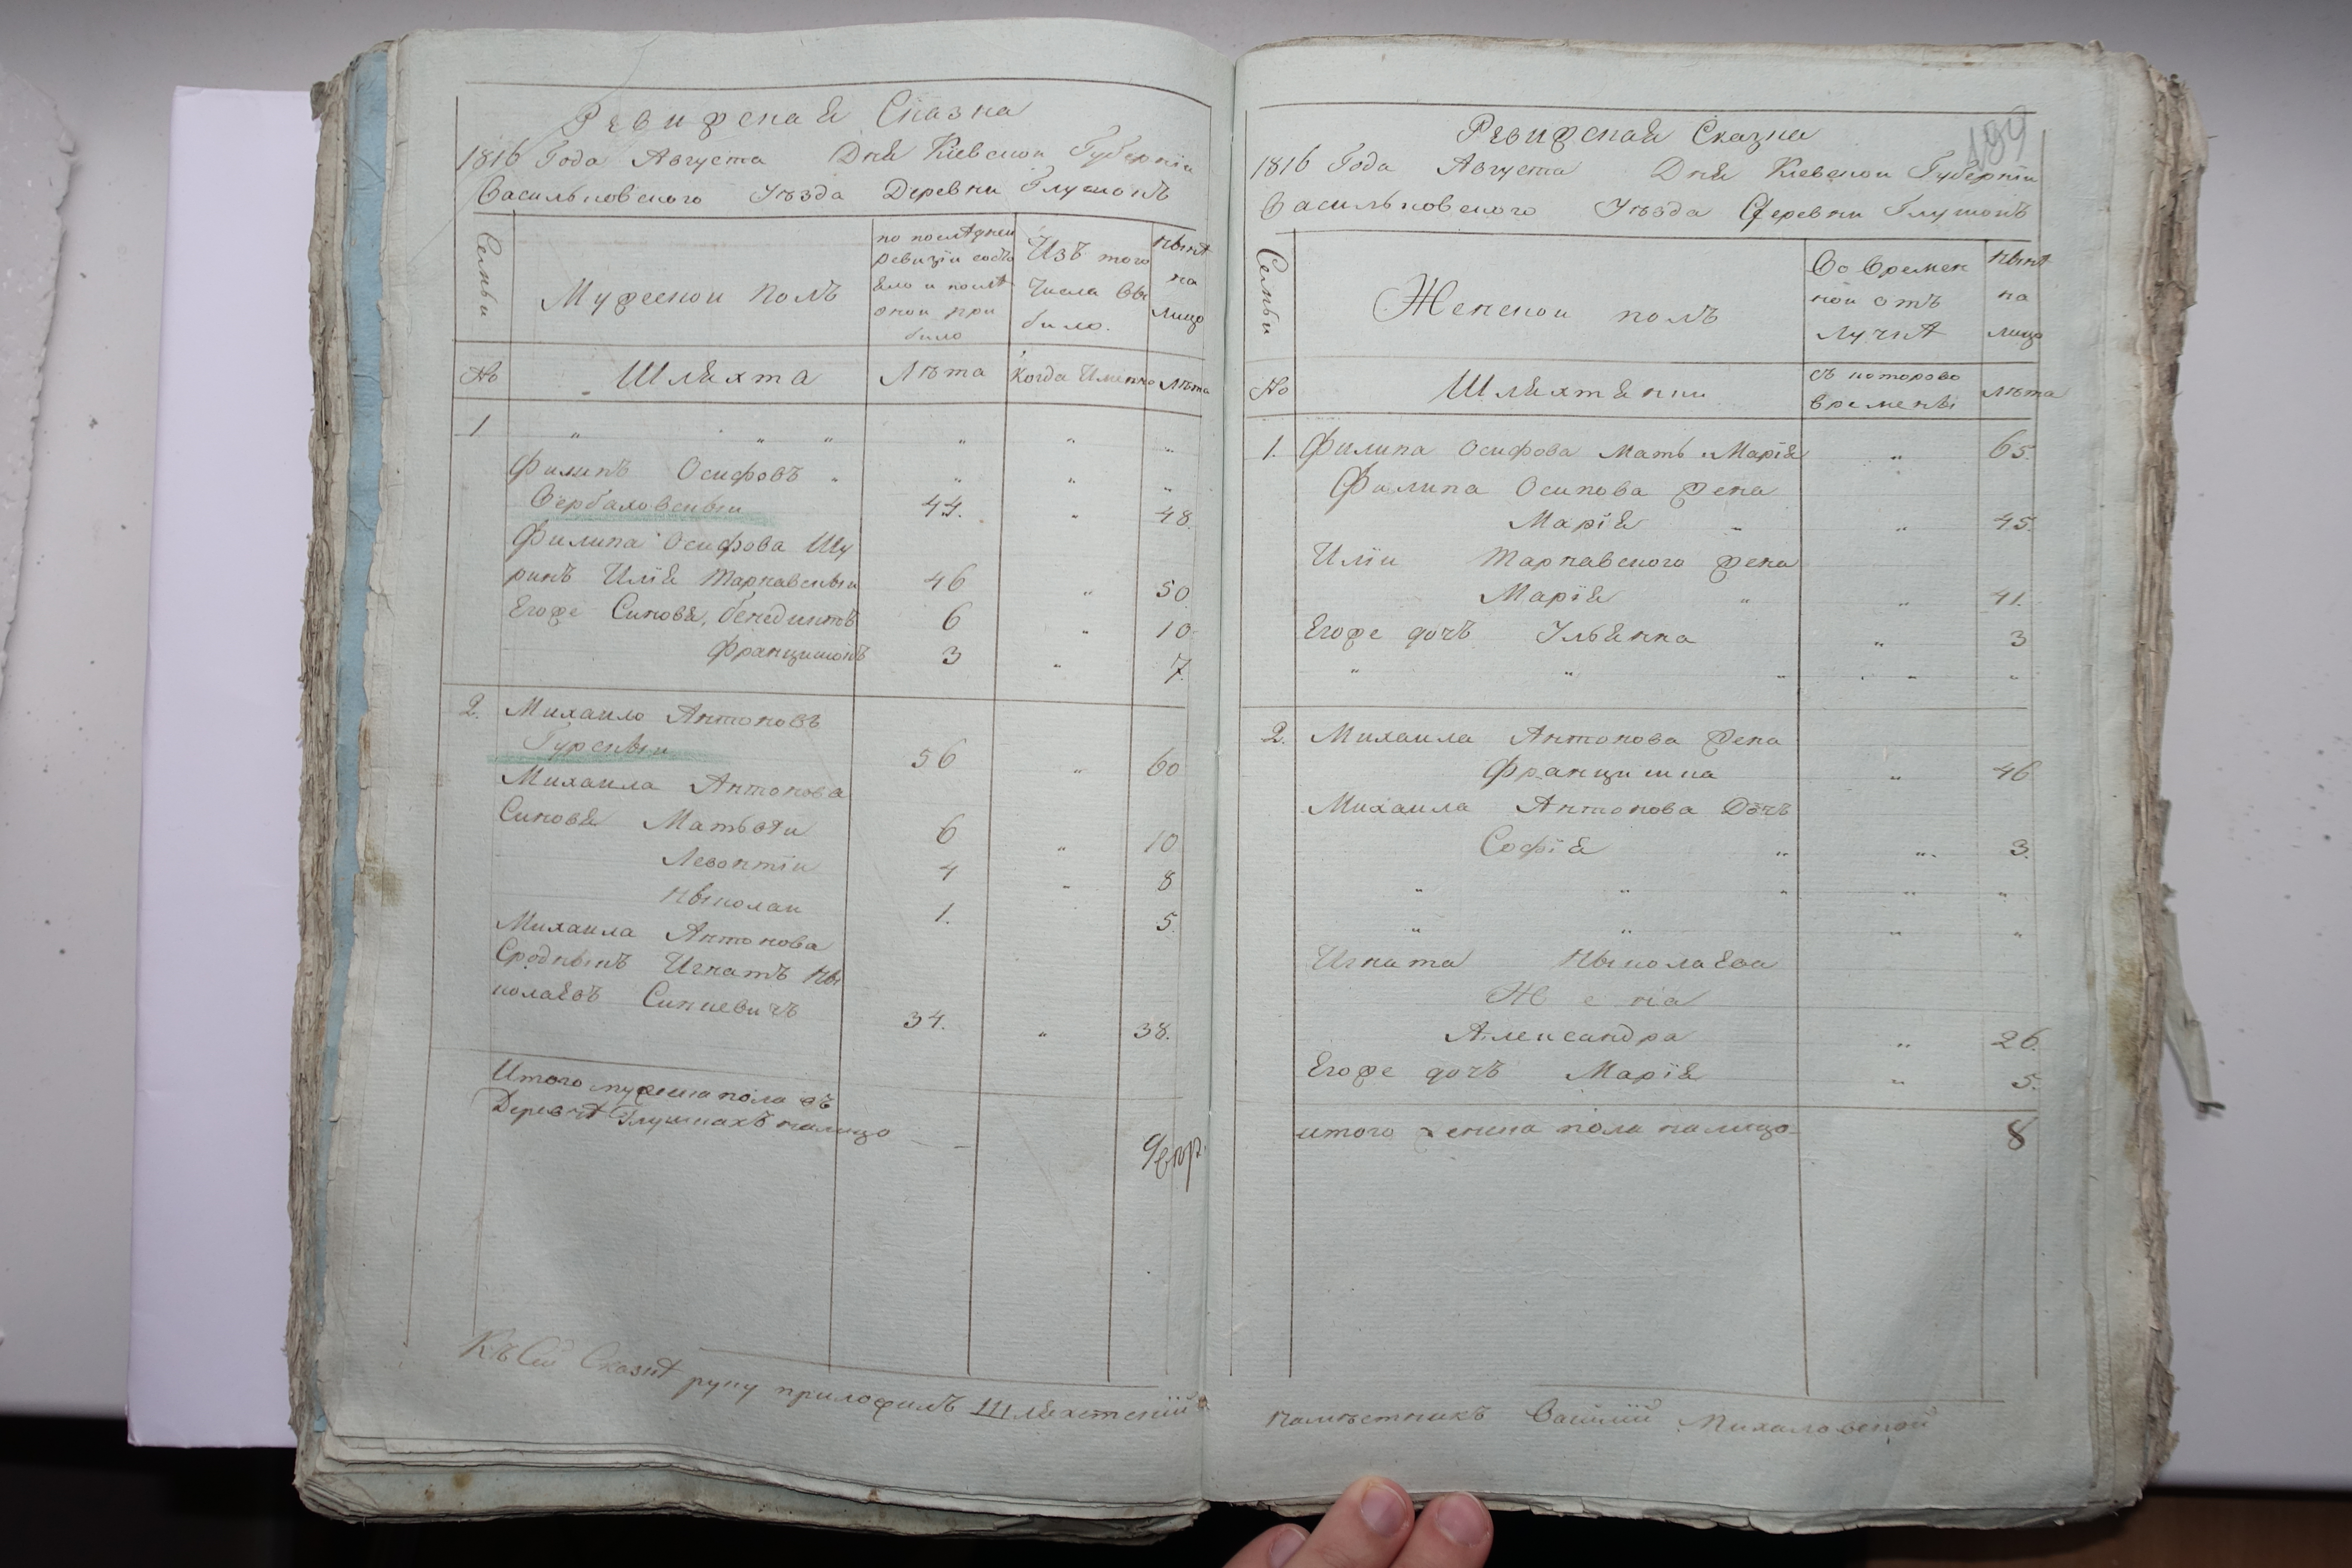 Ревижская Сказка
1816 Года Августа Дня Кіевской Губерніи
Васильковского Уѣзда Деревни Глушокъ
Семьи
Мужескои полъ
по послѣдней
ревизіи состо
яло и послѣ
оной при
было
Изъ того
Числа вы
было.
нынѣ
на
лицо
№ Шляхта Лѣта Когда Имянно Лѣта
1. „ „ „ „ „ „
Филипъ Осифовъ „ „ „ „
Вербаховскыи 44. „ 48.
Филипа Осифова Шу
ринъ Илія Тарнавскыи 46 „ 50
Егоже Синовя, бенедиктъ 6 „ 10.
Францишокъ 3 „ 7.
2. Михаило Антоновъ
Гурскыи 56 „ 60
Михаила Антонова
Синовя Матьвѣи 6 „ 10
Левонтіи 4 „ 8
Ныколаи 1. „ 5.
Михаила Антонова
Сродныкъ Игнатъ Ны
колаевъ Синкевичъ 34. „ 38.
Итого мужеска пола въ
Деревнѣ Глушкахъ налицо — 9
Къ Сей Сказкѣ руку приложилъ Шляхетский
199
Ревижская Сказка
1816 Года Августа Дня Кіевской Губерніи
Васильковского Уѣзда Деревни Глушокъ
Семьи
Женской полъ
Во времен
ной отъ
лучкѣ
нынѣ
на
лицо
№ Шляхтянки
съ которово
времены
лѣта
1. Филипа Осифова Мать Марія „ 65.
Филипа Осипова жена
Марія „ „ 45.
Иліи Тарнавского жена
Марія „ „ 41.
Егоже дочъ Ульянна „ 3
„ „ „ „ „ „
2. Михаила Антонова жена
Францишка „ 46
Михаила Антонова Дочъ
Софія „ „ 3.
„ „ „ „ „
„ „ „ „
Игната Ныколаева
Жена
Александра „ 26.
Егоже дочъ Марія „ 5.
итого женска пола налицо 8
намѣстникъ Василій Михаловской